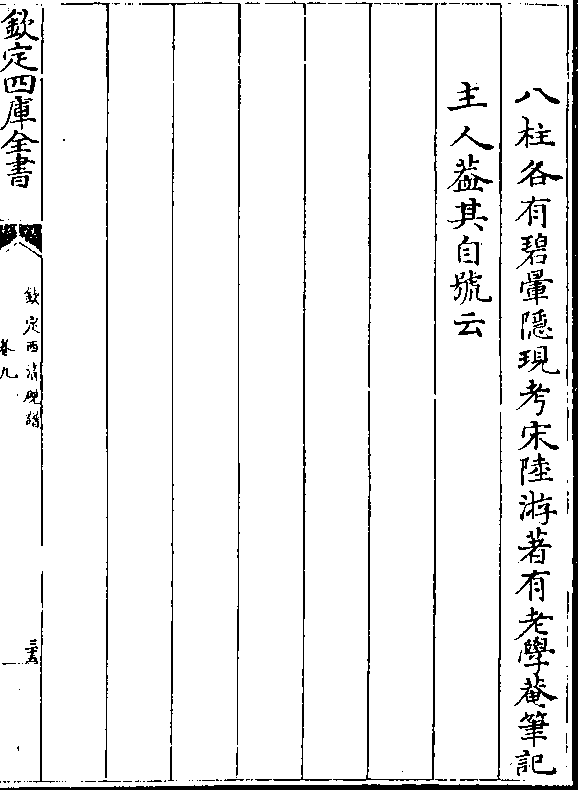 八柱各有碧暈隱現考宋陸游著有老學菴筆記
主人葢其自號云
欽定四庫全書
欽定西清硯譜
卷九
三五